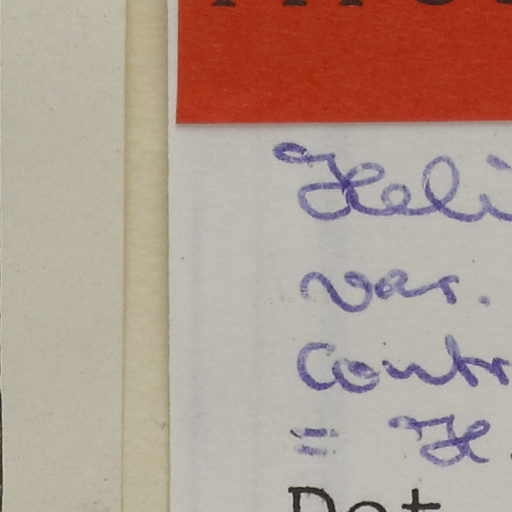 Heli
var.
contr
= H.
Det.